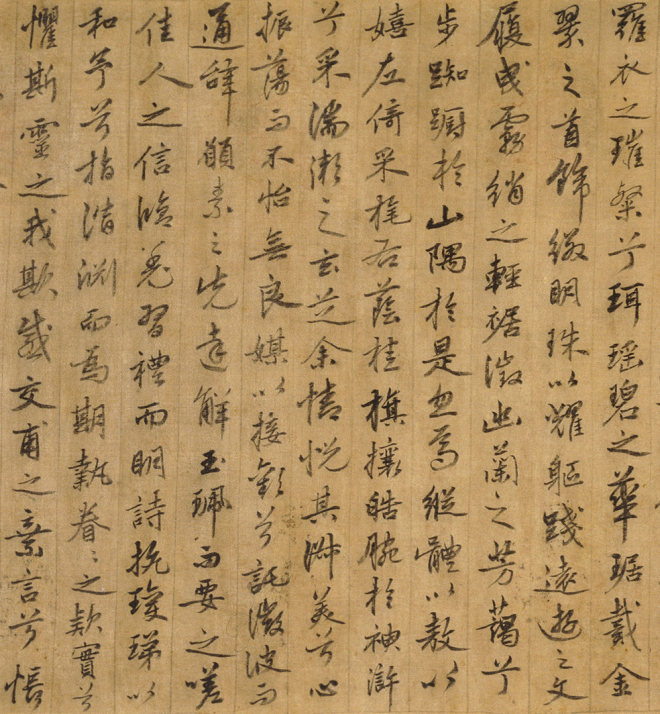 羅衣之璀粲兮珥瑤碧之華琚戴金
翠之首飾綴明珠以耀軀踐遠遊之文
履曳霧綃之輕裾微幽蘭之芳藹兮
步踟躕於山隅於是忽焉縱體以敖以
嬉左倚采旄右蔭桂旗攘皓腕於神滸
兮采湍瀨之玄芝余情悅其淑美兮心
振蕩而不怡無良媒以接歡兮託微波而
通辭願素之先達解玉珮而要之嗟
佳人之信脩羌習禮而明詩抗瓊珶以
和予兮指潛淵而為期執眷〻之款實兮
懼斯靈之我欺感交甫之棄言兮悵